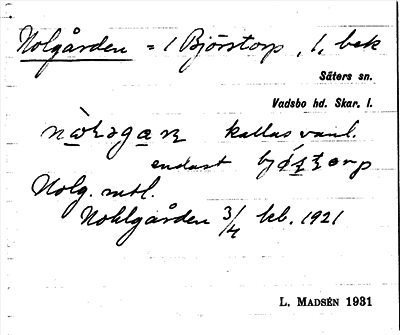 Nolgården = 1 Björstorp, 1, bek
Säters sn.
Vadsbo hd. Skar. l.
kallas vanl.
endast
Nolg. mtl.
Nohlgården 3/4 kb. 1921
L. MADSÉN 1931